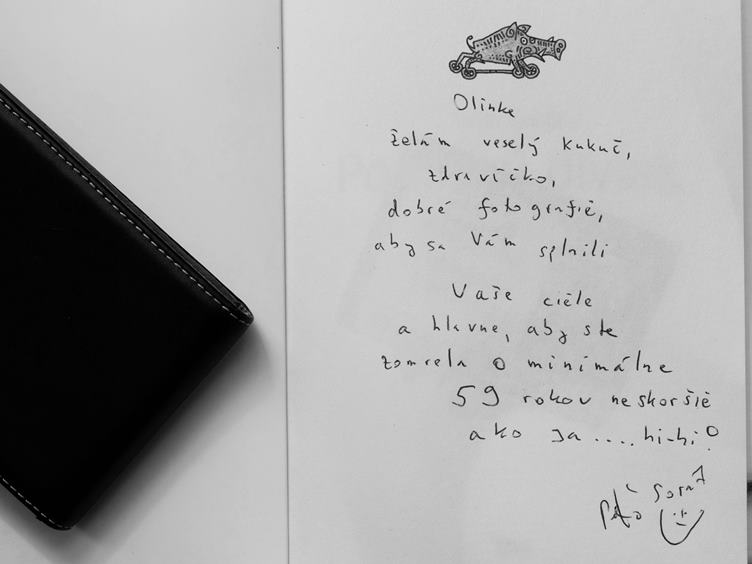 Olinke
želám veselý kukuč,
zdravíčko,
dobré fotografie,
aby sa Vám splnili
Vaše ciele
a hlavne, aby ste
zomrela o minimálne
59 rokov neskoršie
ako ja .... hi-hi